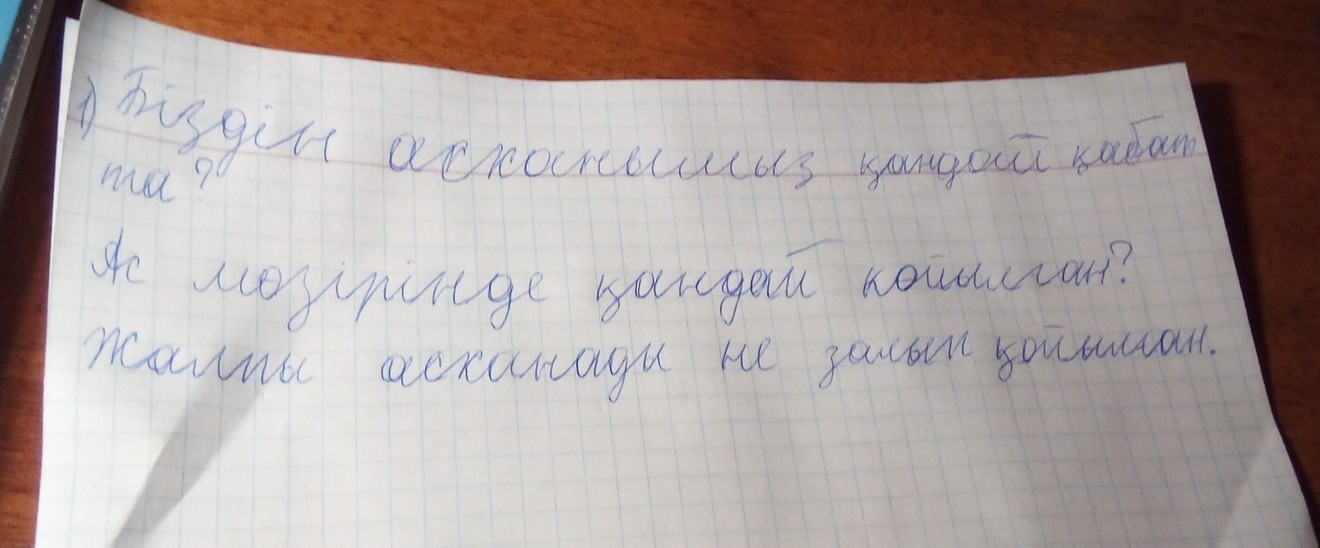 1) Біздін асханымыз қандай қабат
та?
Ас мәзірінде қандай койылган?
Жалпы асханады не залып қойылған.